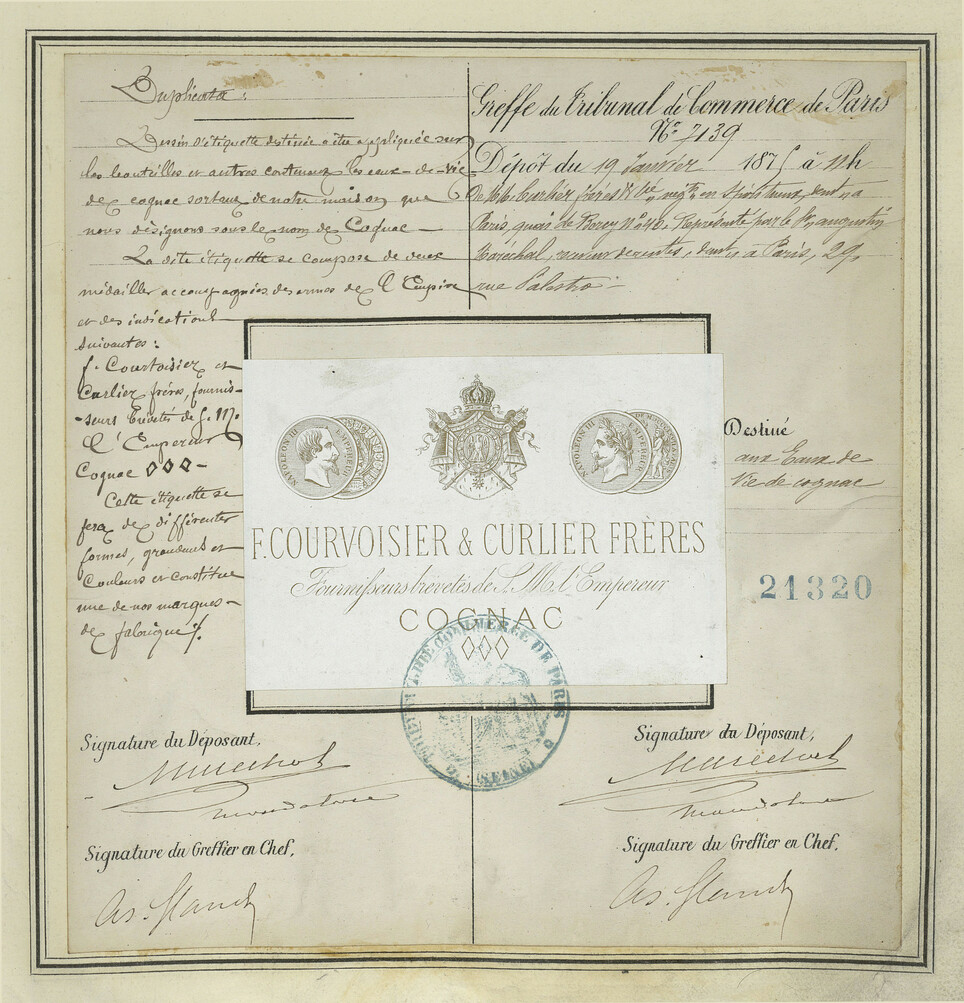 Duplicata :
Dessin d'étiquette destinée à être appliquée sur
les bouteilles et autres contenant les eaux-de-vie
de cognac sortant de notre maison que
nous désignons sous le nom de Cognac –
La dite étiquette se compose de deux
médailles accompagnées des armes de l'Empire
et des indications
suivantes :
f. Courvoisier et
Curlier frères, fournis-
-seurs brevetés de S. M.
l'Empereur
Cognac ◊◊◊ –
Cette étiquette se
fera de différentes
formes, grandeurs et
couleurs et constitue
une de nos marques
de fabrique ./.
Greffe du Tribunal de Commerce de Paris
No 7139
Dépôt du 19 Janvier 1875 à 11h
De MM. Curlier frères & Cie, négts en spiritueux, demt à
Paris, quai de Bercy No 48. Représenté par le Sr augustin
Maréchal, receveur de rentes, demt à Paris, 29,
rue Palestro –
NAPOLEON III EMPEREUR
NAPOLEON III EMPEREUR
F. COURVOISIER & CURLIER FRÈRES
Fournisseurs brévetés de S. M. l'Empereur
COGNAC
◊◊◊
Destiné
aux Eaux de
Vie de cognac
21320
TRIBUNAL DE COMMERCE DE PARIS
(SEINE)
Signature du Déposant,
Maréchal
mandataire
Signature du Greffier en Chef,
Signature du Déposant,
Maréchal
mandataire
Signature du Greffier en Chef,